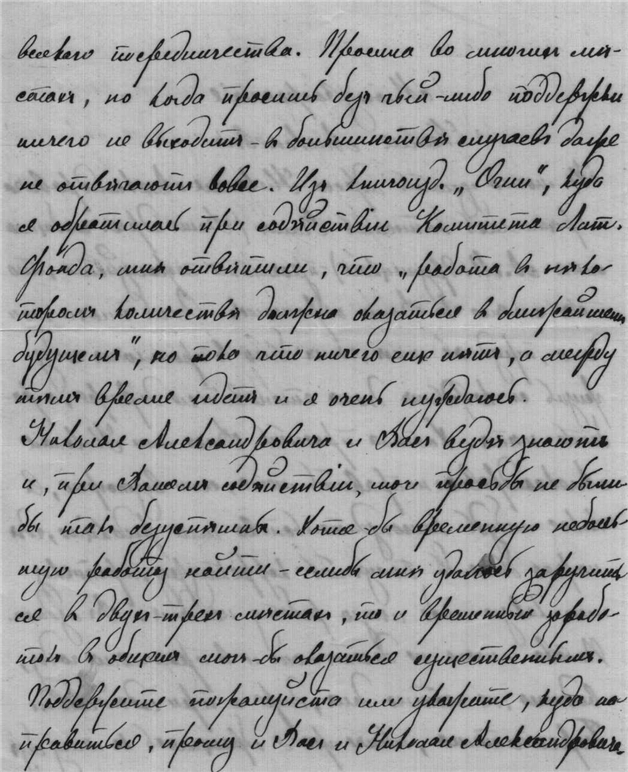 всякаго посредничества. Просила во многихъ мѣ-
стахъ, но когда просишь безъ чьей-либо поддержки
ничего не выходитъ - въ большинствѣ случаевъ даже
не отвѣчаютъ вовсе. Изъ книгоизд. „Огни", куда
я обратилась при содѣйствіи Комитета Лит.
Фонда, мнѣ отвѣтили, что „работа въ нѣко-
торомъ количествѣ должна оказаться въ ближайшемъ
будущемъ", но пока что ничего еще нѣтъ, а между
тѣмъ время идетъ и я очень нуждаюсь.
Николая Александровича и Васъ вездѣ знаютъ
и, при Вашемъ содѣйствіи, мои просьбы не были
бы такъ безуспѣшны. Хотя-бы временную неболь
шую работу найти - еслибы мнѣ удалось заручить
ся въ двухъ-трехъ мѣстахъ, то и временный зарабо-
токъ въ общемъ могъ-бы оказаться существеннымъ.
Поддержите пожалуйста или укажите, куда на
правиться, прошу и Васъ и Николая Александровича